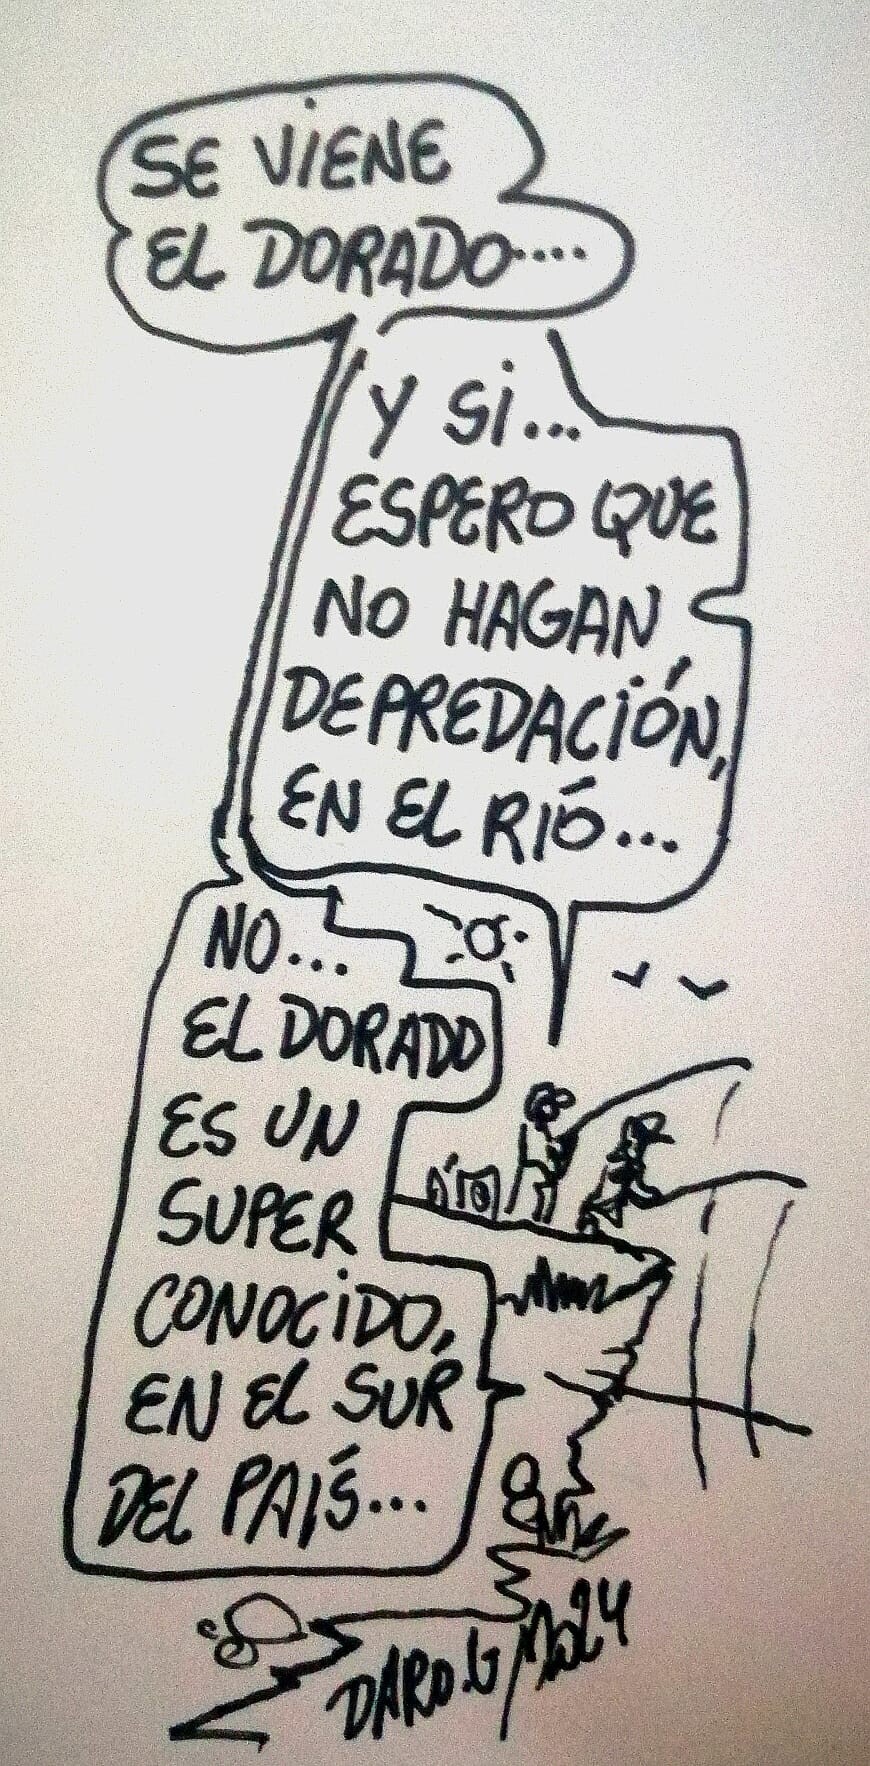 SE VIENE
EL DORADO....
Y SI...
ESPERO QUE
NO HAGAN
DEPREDACIÓN,
EN EL RIÓ...
NO...
EL DORADO
ES UN
SUPER
CONOCIDO,
EN EL SUR
DEL PAÍS...